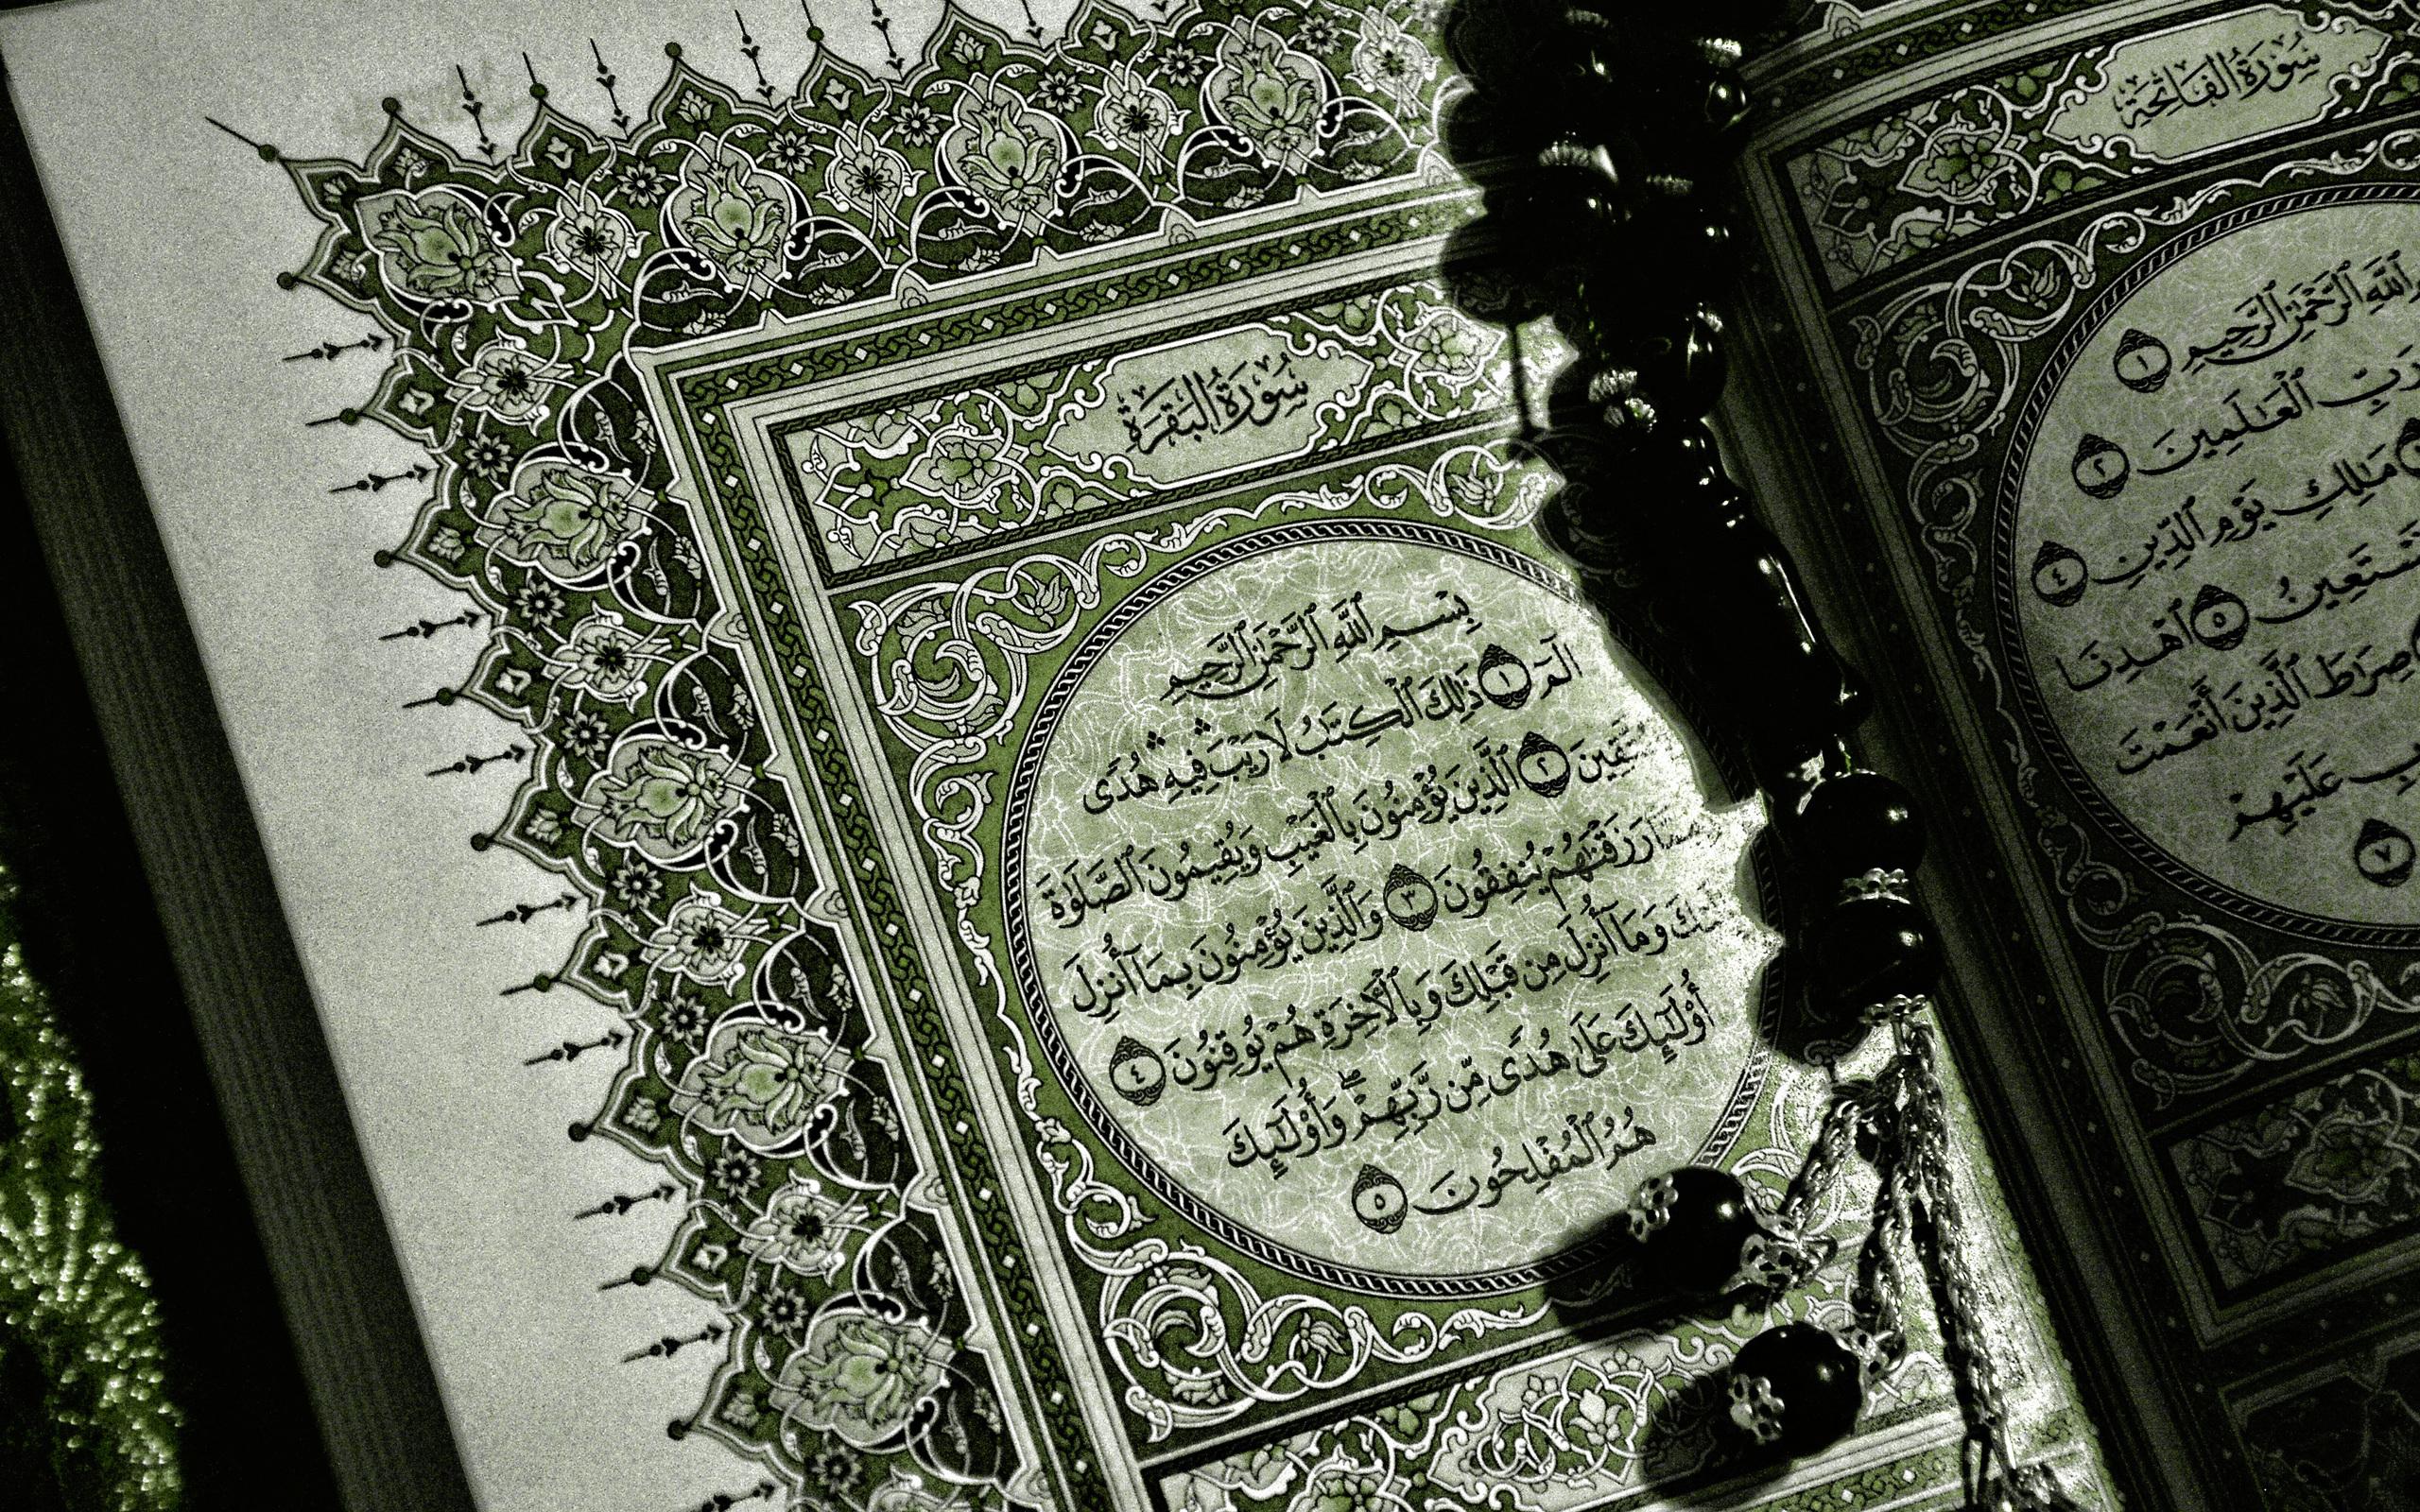 سُورَةُ الفَاتِحَةِ
ٱللَّهِ ٱلرَّحْمَٰنِ ٱلرَّحِيمِ ١
رَبِّ ٱلْعَٰلَمِينَ ٢
مَٰلِكِ يَوْمِ ٱلدِّينِ ٤
نَسْتَعِينُ ٥ ٱهْدِنَا
صِرَٰطَ ٱلَّذِينَ أَنْعَمْتَ
عَلَيْهِمْ
٧
سُورَةُ البَقَرَةِ
بِسْمِ ٱللَّهِ ٱلرَّحْمَٰنِ ٱلرَّحِيمِ
الٓمٓ ١ ذَٰلِكَ ٱلْكِتَٰبُ لَا رَيْبَ ۛ فِيهِ ۛ هُدًى
٢ ٱلَّذِينَ يُؤْمِنُونَ بِٱلْغَيْبِ وَيُقِيمُونَ ٱلصَّلَوٰةَ
رَزَقْنَٰهُمْ يُنفِقُونَ ٣ وَٱلَّذِينَ يُؤْمِنُونَ بِمَآ أُنزِلَ
وَمَآ أُنزِلَ مِن قَبْلِكَ وَبِٱلْءَاخِرَةِ هُمْ يُوقِنُونَ ٤
أُو۟لَٰٓئِكَ عَلَىٰ هُدًى مِّن رَّبِّهِمْ ۖ وَأُو۟لَٰٓئِكَ
هُمُ ٱلْمُفْلِحُونَ ٥